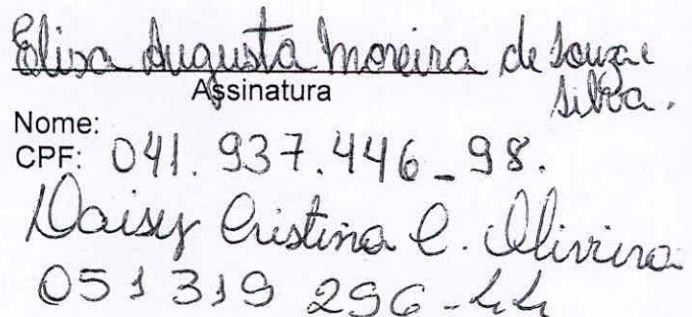 Elisa Augusta Moreira de Souza e
Silva.
Assinatura
Nome:
CPF: 041.937.446-98.
Daisy Cristina C. Oliveira
051 319 296-44